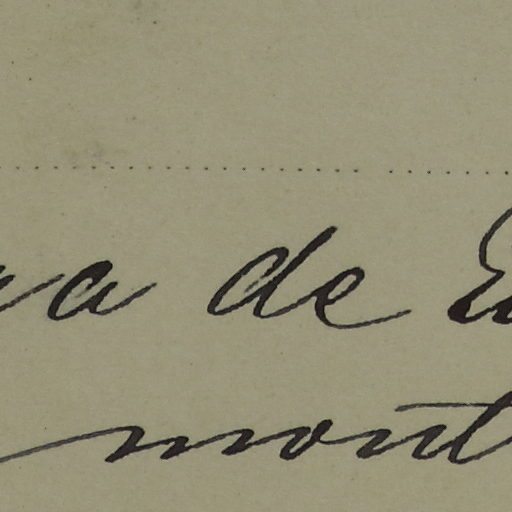 a de
mont